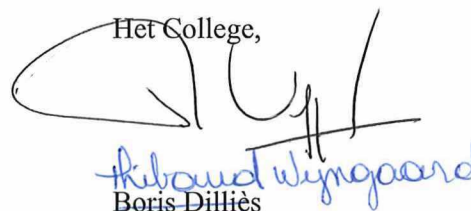 Het College,
Thibaud Wyngaard
Boris Dilliès